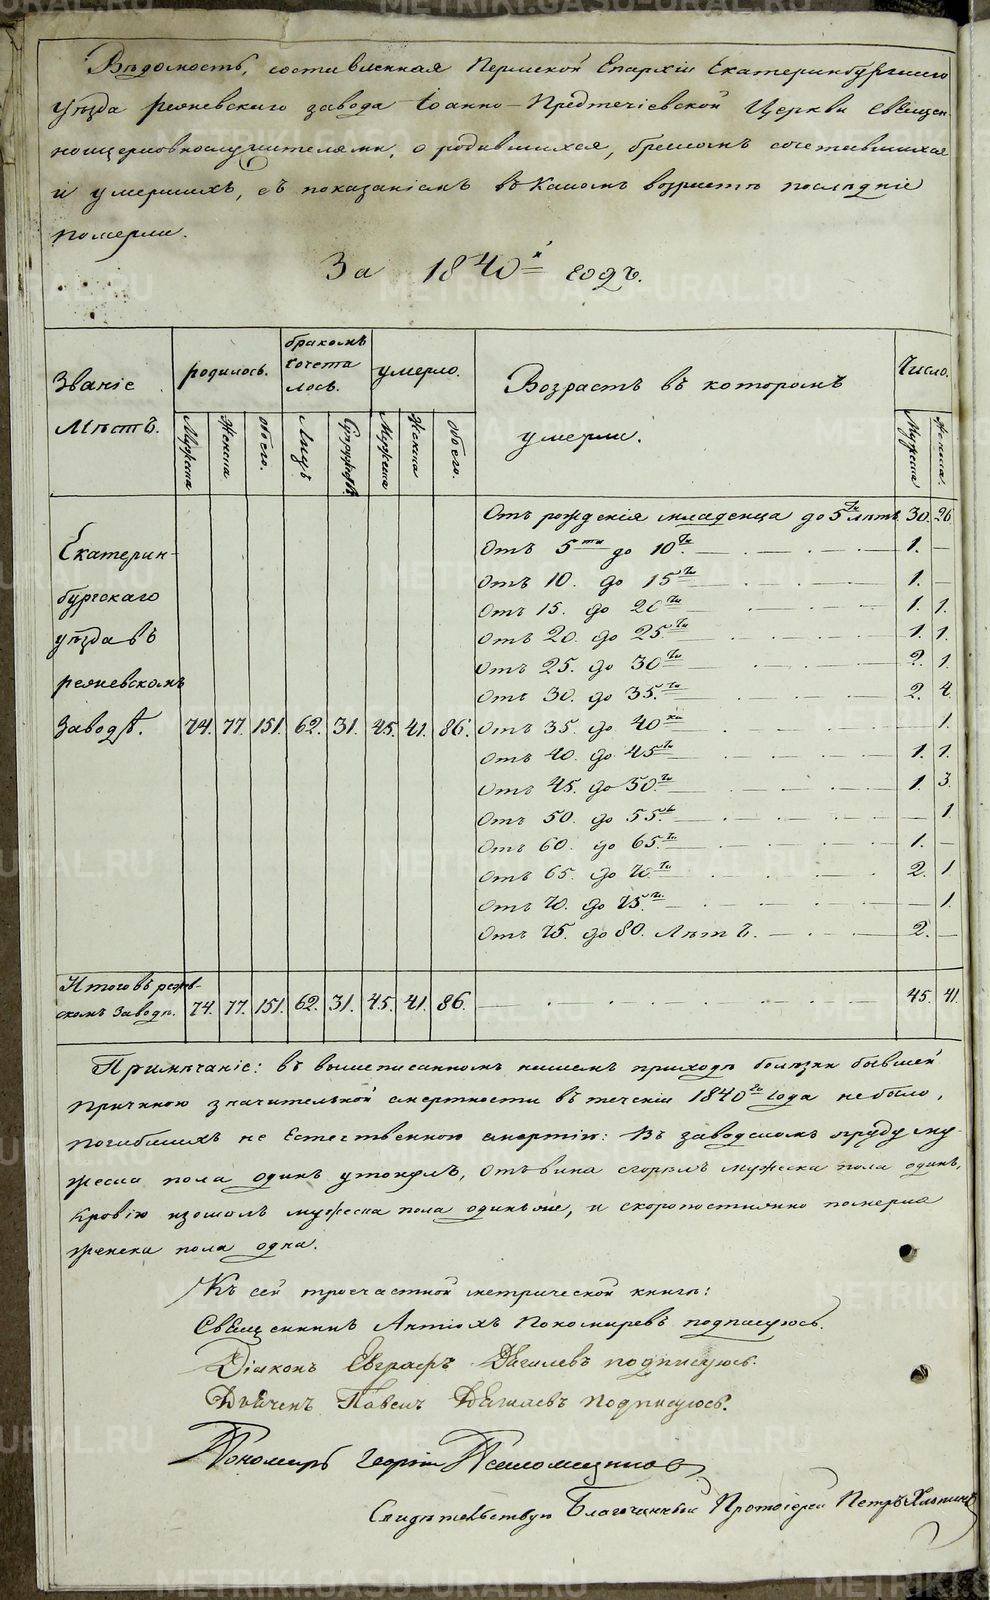 Вѣдомость, составленная Пермской Епархіи Екатеринбургскаго
уѣзда режевскаго завода Іоанно-Предтечіевской Церкви священ-
ноцерковнослужителями, о родившихся, бракомъ сочетавшихся
и умершихъ, съ показаніемъ въ какомъ возрастѣ послѣдніе
померли.
За 1840й годъ.
Званіе мѣстъ. родилось. бракомъ сочеталось. умерло. Возрастъ въ которомъ умерли. Число.
Мужеска Женска обоего. Лицъ Супружествъ Мужеска Женска обоего. Мужеска Женска.
Отъ рожденія младенца до 5ти лѣтъ 30. 26
Отъ 5ти до 10ти. 1. —
Отъ 10. до 15ти 1. —
Отъ 15. до 20ти 1. 1.
Отъ 20. до 25.ти 1. 1.
Отъ 25. до 30ти 2. 1.
Отъ 30. до 35.ти 2. 4
Екатерин-
бургскаго
уѣзда въ
режевскомъ
Заводѣ. 74. 77. 151. 62. 31. 45. 41. 86. Отъ 35. до 40ка — 1.
Отъ 40. до 45ти 1. 1.
Отъ 45. до 50.ти 1. 3.
Отъ 50. до 55.ти — 1.
Отъ 60. до 65.ти 1. —
Отъ 65. до 70.ти 2. 1.
Отъ 70. до 75.ти — 1.
Отъ 75. до 80. Лѣтъ. 2. —
Итого въ режев-
скомъ Заводѣ. 74. 77. 151. 62. 31. 45. 41. 86. 45. 41.
Примѣчаніе: въ вышеписанномъ нашемъ приходѣ болѣзни бывшей
причиною значительной смертности въ теченіи 1840го года небыло,
погибшихъ не естественною смертію: Въ заводскомъ пруду му-
жеска пола одинъ утонулъ, отъ вина сгорѣлъ мужеска пола одинъ,
Кровію изошолъ мужеска пола одинъ же, и скоропостижно померла
женска пола одна.
Къ сей тречастной метрической книгѣ:
Священникъ Антіохъ Пономаревъ подписуюсь.
Діаконъ Евграфъ подписуюсь.
Павелъ подписуюсь.
Пономарь Георгій
Свидѣтельствую Благочинный Протоіерей Петръ
METRIKI.GASO-URAL.RU